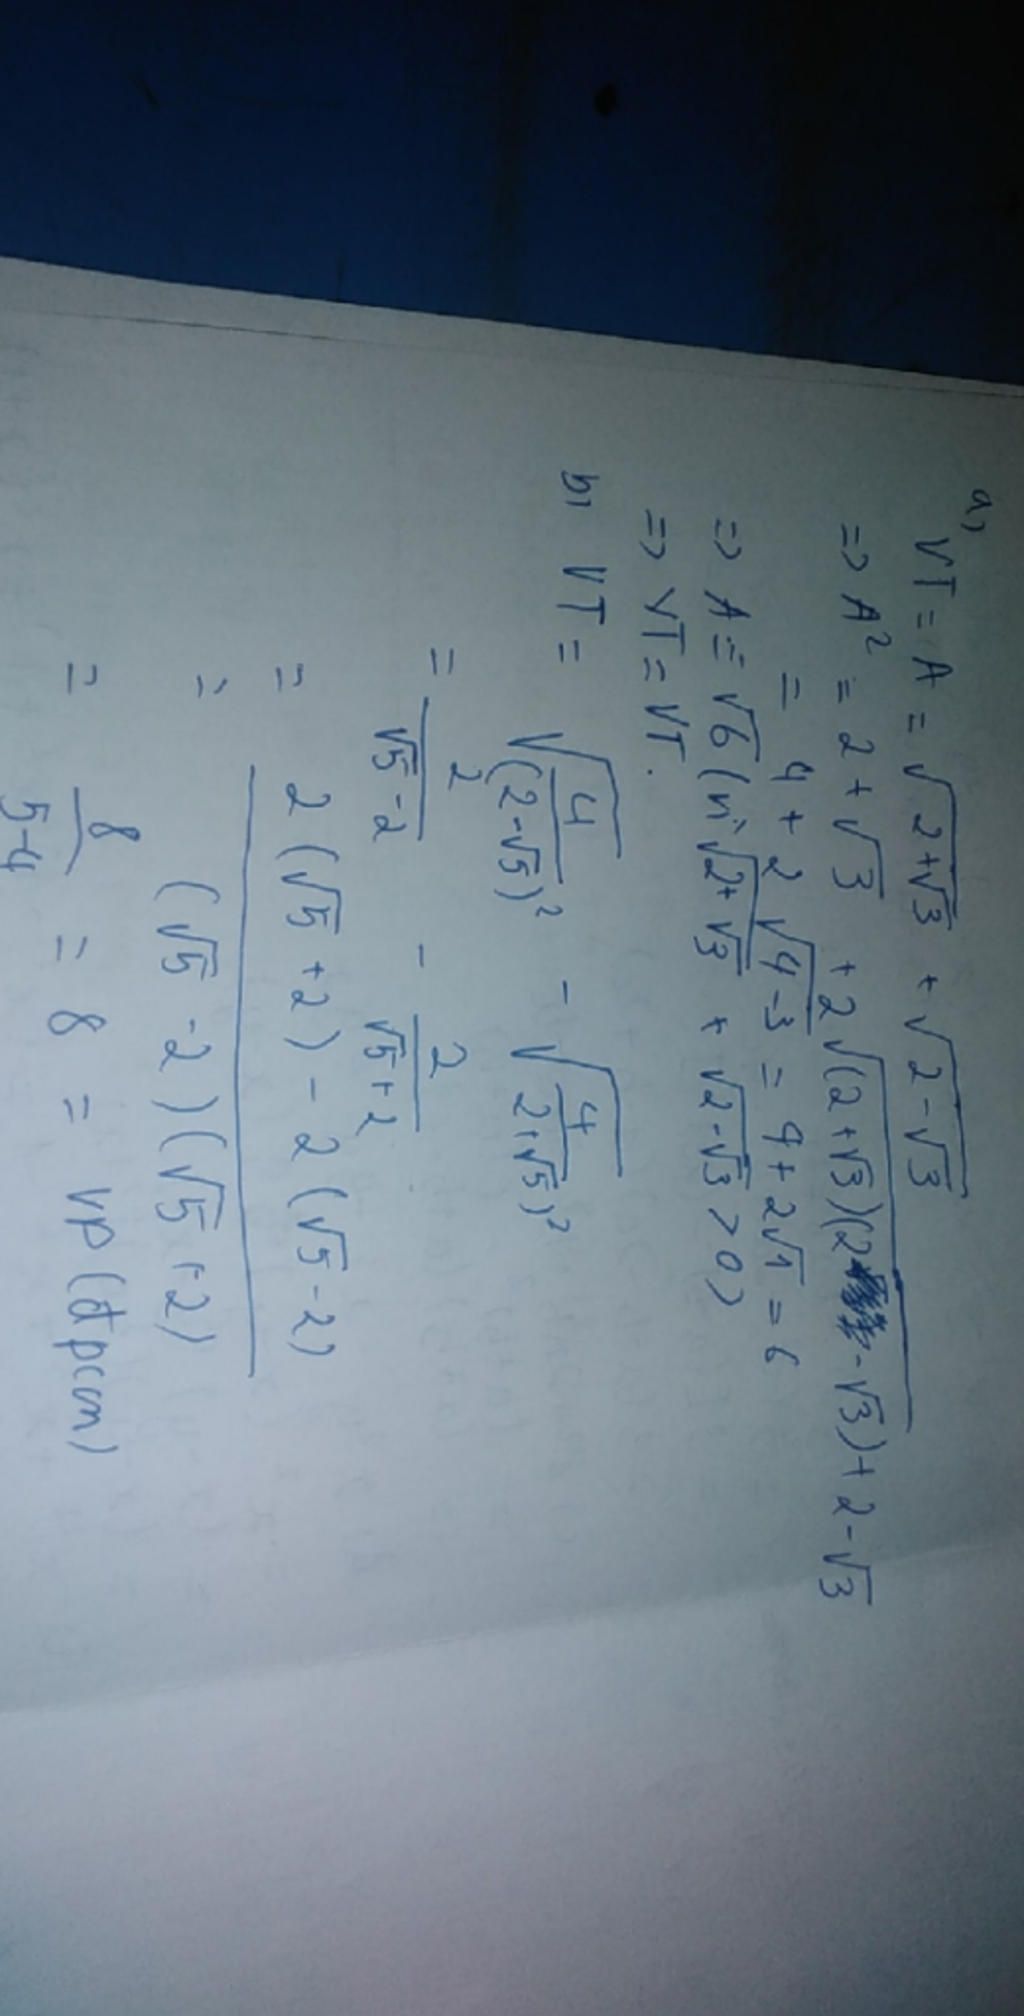 a,
VT = A = √(2+√3) + √(2-√3)
=> A² = 2 + √3 + 2√((2+√3)(2-√3)) + 2 - √3
= 4 + 2√(4-3) = 4 + 2√1 = 6
=> A = √6 (vì √(2+√3) + √(2-√3) > 0)
=> VT = VT.
b, VT = √(4/(2-√5)²) - √(4/2+√5)²
= 2/(√5-2) - 2/(√5+2)
= 2(√5+2) - 2(√5-2)
= (√5-2)(√5+2)
= 8/(5-4) = 8 = VP (đpcm)